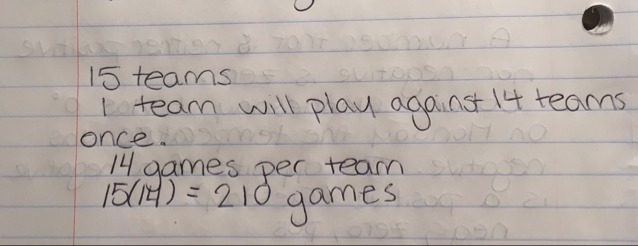 15 teams
1 team will play against 14 teams
once.
14 games per team
15(14) = 210 games